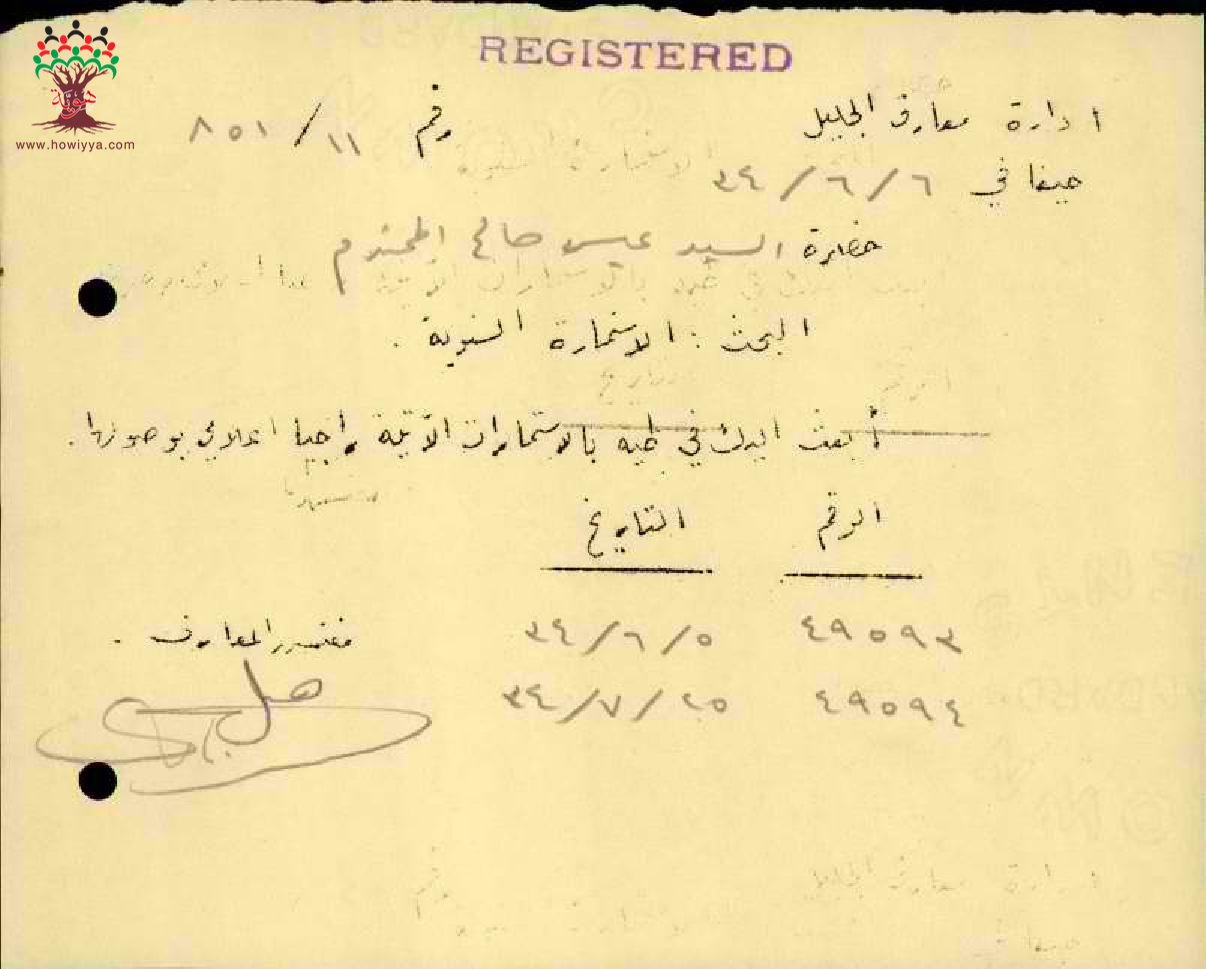 REGISTERED
هوية
www.howiyya.com
ادارة معارف الجليل رقم ١١/٨٥١
حيفا في ٦/٦/٣٤
حضرة السيد عيسى صالح المحترم
البحث : الاستمارة السنوية .
أبعث اليك في طيه بالاستمارات الآتية راجيا اعلامي بوصولها .
الرقم التاريخ
٤٩٥٩٣ ٥/٦/٣٤
مفتش المعارف .
٤٩٥٩٤ ٢٥/٧/٣٤